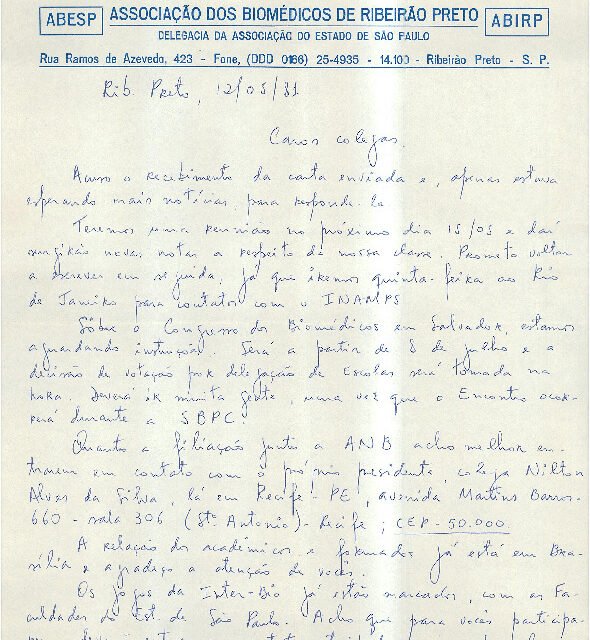 ABESP
ASSOCIAÇÃO DOS BIOMÉDICOS DE RIBEIRÃO PRETO
ABIRP
DELEGACIA DA ASSOCIAÇÃO DO ESTADO DE SÃO PAULO
Rua Ramos de Azevedo, 423 - Fone, (DDD 0166) 25-4935 - 14.100 - Ribeirão Preto - S. P.
Rib Preto, 12/05/81
Caros colegas.
Acuso o recebimento da carta enviada e, apenas estava
esperando mais notícias, para responde-la
Teremos uma reunião no próximo dia 15/05 e daí
surgirão novas notas a respeito de nossa classe. Prometo voltar
a escrever em seguida, já que iremos quinta-feira ao Rio
de Janeiro para contatos com o INAMPS
Sôbre o Congresso dos Biomédicos em Salvador, estamos
aguardando instrução. Será a partir de 8 de julho e a
decisão de votação por delegação de Escolas será tomada na
hora. Deverá ir muita gente, uma vez que o Encontro ocor-
rerá durante a SBPC.
Quanto a filiação junto a ANB acho melhor en-
trarem em contato com o próprio presidente, colega Nilton
Alves da Silva, lá em Recife - PE, avenida Martins Barros-
660 - sala 306 (Stº Antonio) - Recife; CEP - 50.000.
A relação dos acadêmicos e formados já está em Bra-
sília e agradeço a atenção de vocês.
Os jogos da Inter-Bio já estão marcados, com as Fa-
culdades do Est. de São Paulo. Acho que para vocês participa-